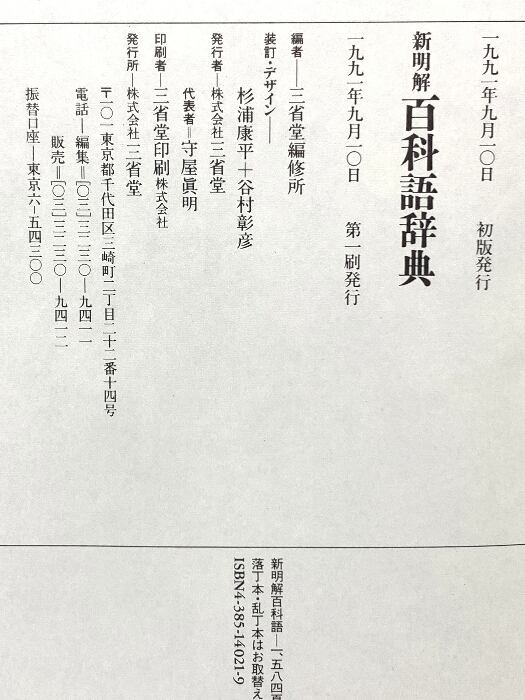 一九九一年九月一〇日　初版発行
新明解百科語辞典
一九九一年九月一〇日　第一刷発行
編者――三省堂編修所
装訂・デザイン――
杉浦康平＋谷村彰彦
発行者―株式会社三省堂
代表者＝守屋眞明
印刷者―三省堂印刷株式会社
発行所―株式会社三省堂
〒一〇一東京都千代田区三崎町二丁目二十二番十四号
電話―編集＝[〇三]三二三〇―九四一一
販売＝[〇三]三二三〇―九四一二
振替口座―東京六―五四三〇〇
新明解百科語―一、五八四頁
落丁本・乱丁本はお取替え
ISBN4-385-14021-9